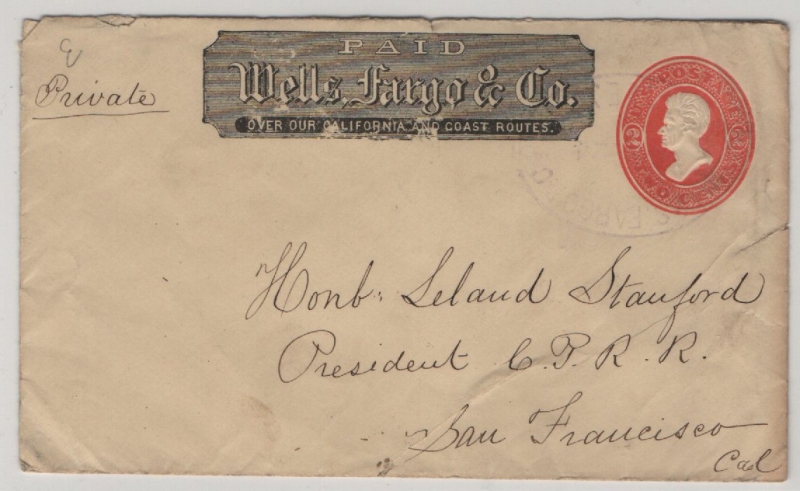 PAID
Wells, Fargo & Co.
OVER OUR CALIFORNIA AND COAST ROUTES.
Private
U.S. POSTAGE
2 2
TWO CENTS
FARGO
Honb: Leland Stanford
President C. P. R. R.
San Francisco
Cal